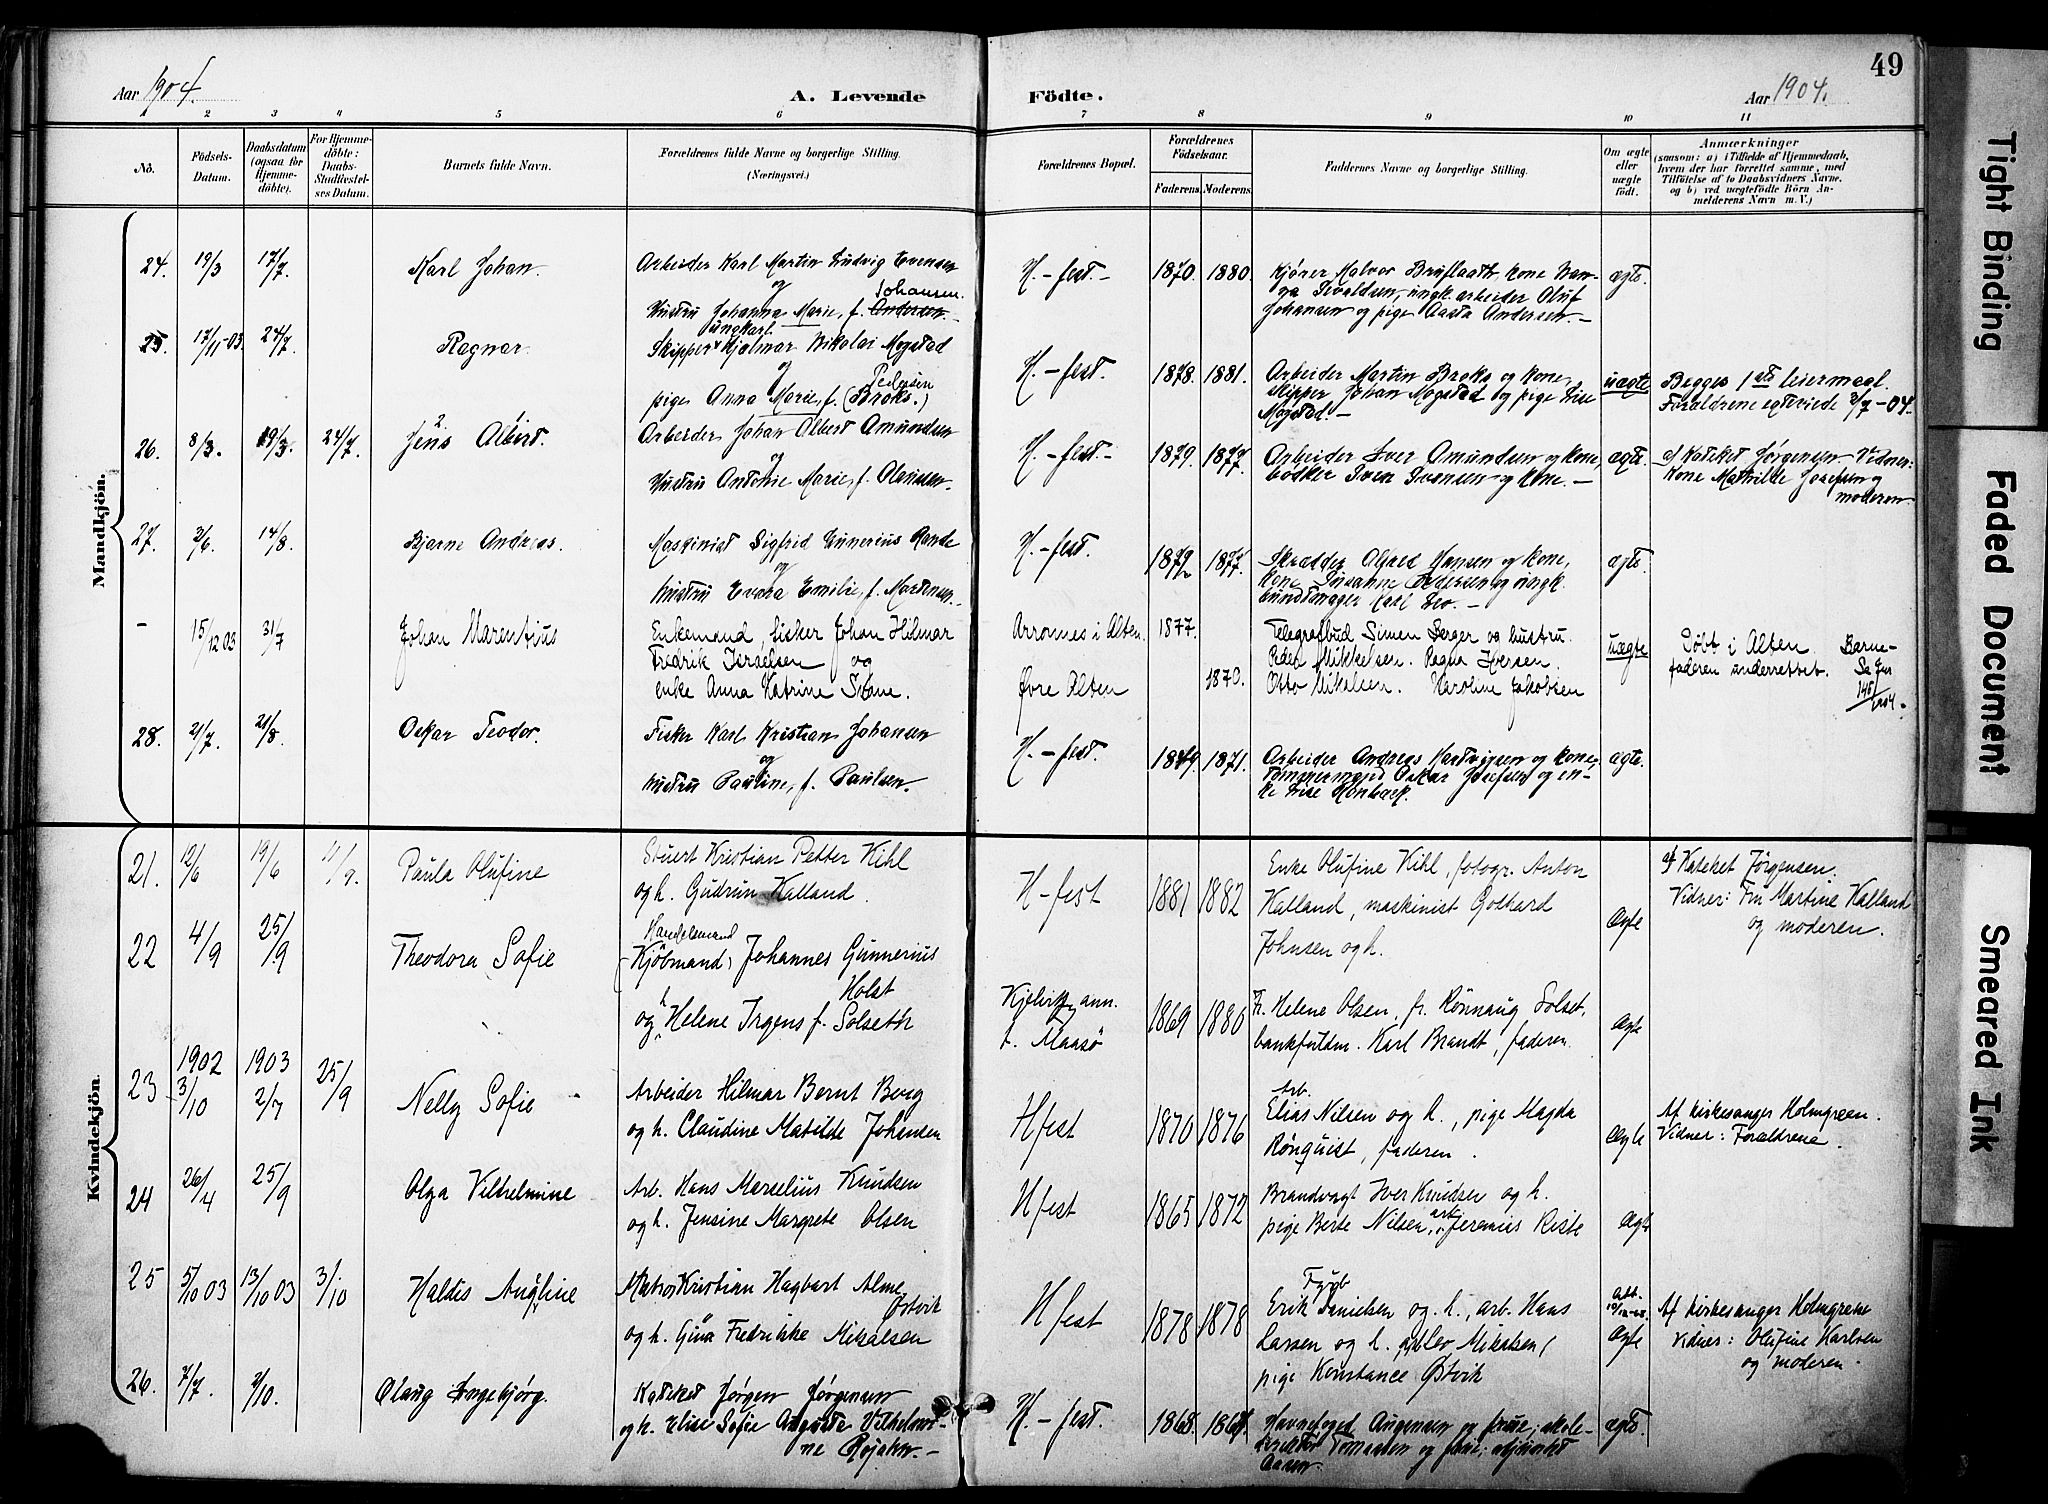 49
Aar 1904.
A. Levende Födte.
Aar 1904.
1 2 3 4 5 6 7 8 9 10 11
No.
Födsels-Datum.
Daabsdatum (ogsaa for Hjemme-döbte).
For Hjemme-döbte: Daabs-Stadfæstel-ses Datum.
Barnets fulde Navn.
Forældrenes fulde Navne og borgerlige Stilling.
(Næringsvei.)
Forældrenes Bopæl.
Forældrenes Födselsaar.
Faderens. Moderens.
Faddernes Navne og borgerlige Stilling.
Om ægte eller uægte födt.
Anmærkninger
(saasom: a) i Tilfælde af Hjemmedaab,
hvem der har forrettet samme, med
Tilföielse af to Daabsvidners Navne,
og b) ved uægtefödte Börn An-
melderens Navn m. V.)
Mandkjön.
24. 19/3 17/7. Karl Johan. Arbeider Karl Martin Ludvig Evensen
og Johansen.
Hustru Johanna Marie, f. Andersen.
H.-fest. 1870. 1880.
Kjører Halvor Bryflaath, kone Nan-
na Sivaldsen, ungk. arbeider Oluf
Johansen og pige Aasta Andersen.
ægte.
25. 17/11-03. 24/7. Ragnar.
ungkarl
Skipper Hjalmar Nikolai Mogstad
og Pedersen
pige Anna Marie, f. (Broks.)
H.-fest. 1878. 1881.
Arbeider Martin Broks og kone,
skipper Johan Mogstad og pige Lise
Mogstad.
uægte
Begges 1ste leiermaal.
Forældrene egteviede 3/7-04.
26. 8/3. 19/3. 24/7. Jens Albert.
2
Arbeider Johan Albert Amundsen
og
Hustru Antonie Marie, f. Olaussen.
H.-fest. 1879. 1877.
Arbeider Iver Amundsen og kone,
bødker Sven Svensen og kone.
ægte.
af Kateket Jørgensen Vidner:
Kone Mathilde Josefsen og
moderen.
27. 2/6. 14/8. Bjarne Andreas.
Maskinist Sigfrid Gunerius Rande
og
Hustru Evora Emilie, f. Mortensen.
H.-fest. 1872 1877.
Skrædder Alfred Hansen og kone,
kone Susanne Pedersen og ungk.
buntmager Karl Bro.
ægte.
- 15/12 03 31/7 Johan Marentius
Enkemand, fisker Johan Hilmar
Fredrik Israelsen og
enke Anna Katrine Stane.
Arronæs i Alten. 1877.
Øvre Alten 1870.
Telegrafbud Simen Berger og hustru.
Peder Mikkelsen. Ragna Iversen.
Otto Mikalsen. Karoline Jakobsen
uægte
Døbt i Alten. Barne-
faderen underrettet. Se Jnr
145/1904.
28. 2/7. 21/8. Oskar Teodor.
Fisker Karl Kristian Johansen
og
Hustru Pauline, f. Paulsen.
H.-fest. 1879. 1871.
Arbeider Andreas Hartvigsen og kone,
Tømmermand Oskar Josefsen og en-
ke Lise Kornbæck.
ægte.
Kvindekjön.
21. 12/6 19/6 11/9. Paula Olufine
Stuert Kristian Petter Kihl
og h. Gudrun Kalland.
H-fest 1881 1882
Enke Olufine Kihl, fotogr. Anton
Kalland, maskinist Gothard
Johnsen og h.
Ægte
af Kateket Jørgensen.
Vidner: Fru Martine Kalland
og moderen.
22 4/9 25/9 Theodora Sofie
Handelsmand
(Kjöbmand) Johannes Gunnerius
Holst
og h Helene Irgens f. Solseth
Kjelvik, ann.
t. Maasö
1869 1880
Fr. Helene Olsen, fr. Rønnaug Solset,
bankfuldm. Karl Brandt, faderen.
Ægte
23 1902 3/10 1903 2/7 25/9 Nelly Sofie
Arbeider Hilmar Bernt Berg
og h. Claudine Matilde Johansen
Hfest 1870 1876
Arb.
Elias Nilsen og h., pige Magda
Rönquist, faderen.
Ægte
Af kirkesanger Holmgreen.
Vidner: Forældrene.
24 26/4 25/9 Olga Vilhelmine
Arb. Hans Marselius Knudsen
og h. Jensine Margrete Olsen
Hfest 1865 1872
Brandvagt Iver Knudsen og h.
pige Berte Nilsen, arb. Jeremias Riste
Ægte
25 5/10 03 13/10 03 3/10 Haldis Angeline
Matros Kristian Hagbart Alme
Østvik
og h. Gina Fredrikke Mikalsen
Hfest 1878 1878
Erik Danielsen og h., arb. Hans
Larsen og h., Mikalsen,
pige Konstance Østvik
Ægte
Af kirkesanger Holmgreen
Vidner: Olufine Karlsen
og moderen.
26. 7/7. 2/10. Olaug Ingebjørg.
Kateket Jørgen Jørgensen
og h. Elise Sofie Augusta Vilhelmi-
ne Rojahn.
H.-fest. 1868. 1868.
Havnefoged Augensen og frue, skole-
direktør Tomassen og frue, adjunkt
Aasen.
ægte.
Tight Binding
Faded Document
Smeared Ink